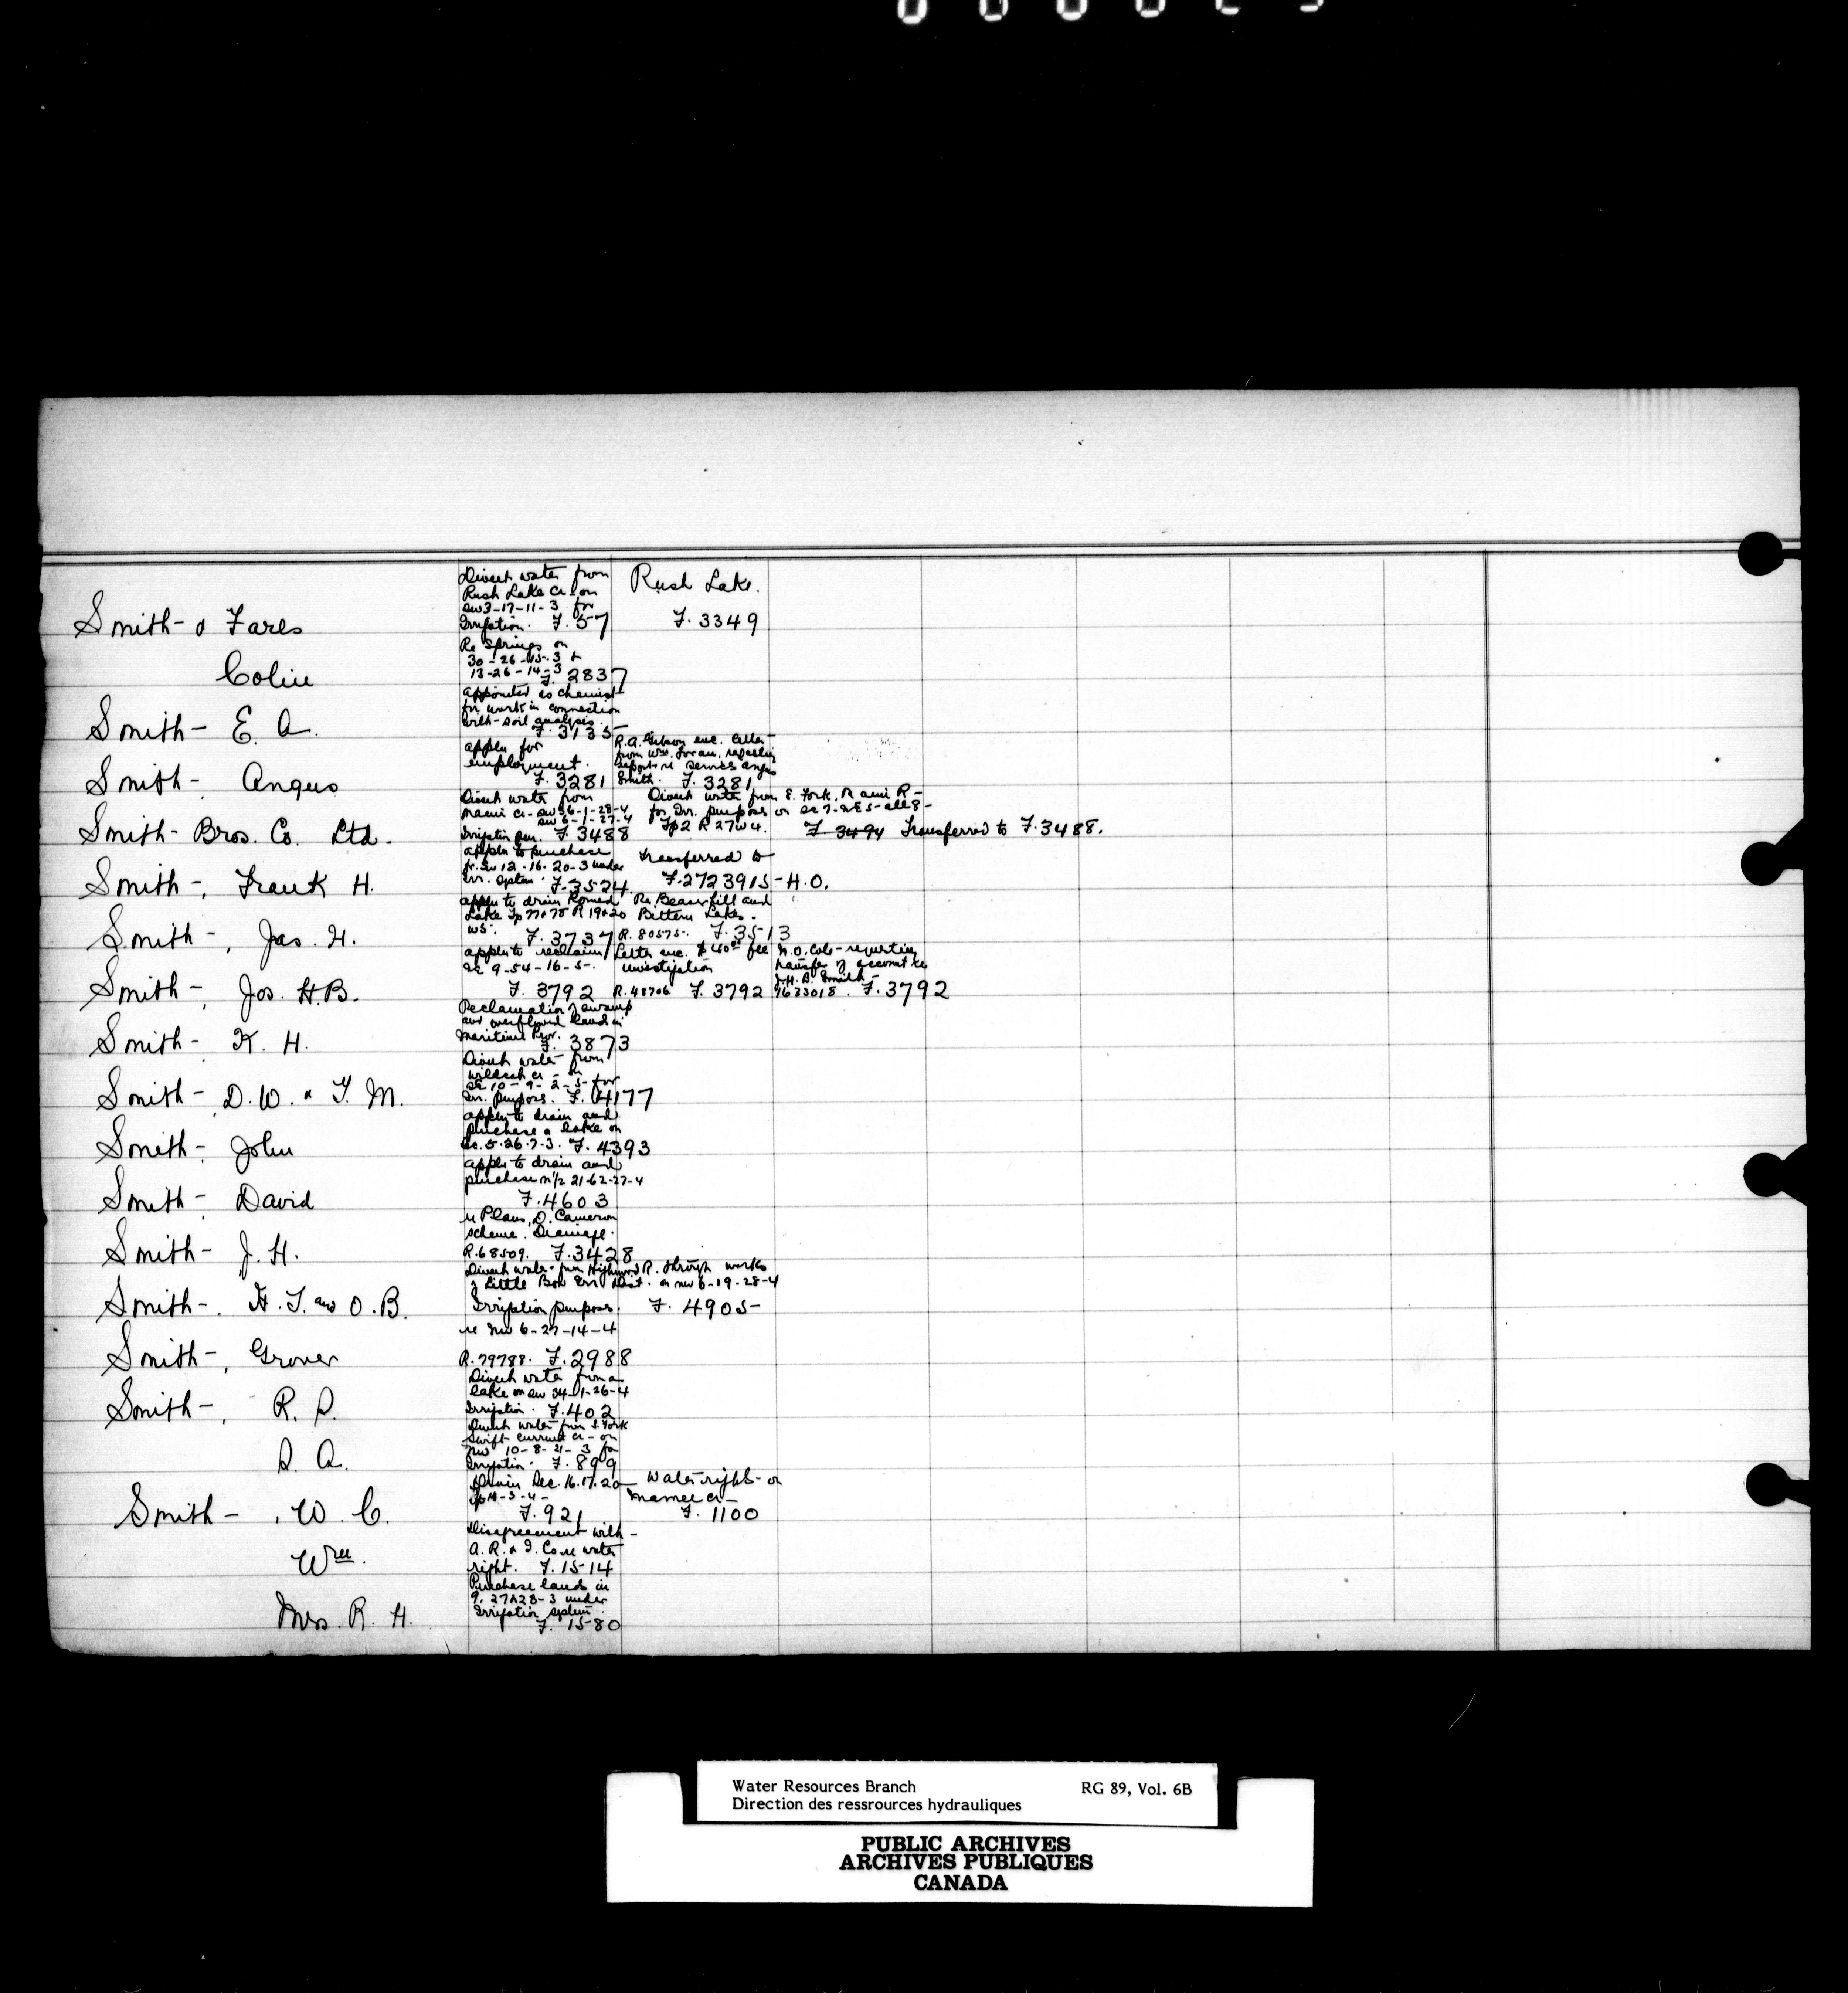 Smith - & Fares
Divert water from
Rush Lake Cr - on
SW 3-17-11-3 for
Irrigation. F. 57
Rush Lake.
F. 3349
Colin
Re Springs on
30-26-15-3 +
13-26-14-3
F. 2837
Smith - E. A.
Appointed as chemist
for work in connection
with - soil analysis.
F. 3135
Smith -, Angus
Applen for
employment.
F. 3281
R.A. Gibson enc. letter
from Wm. Foran, requesting
report re services Angus
Smith. F. 3281
Smith - Bros. Co. Ltd.
Divert water from
Mami Cr - SW 36-1-28-4
SW 6-1-27-4
Irrigation pur. F. 3488
Divert water from E. Fork, Mami R -
for Irr. purposes on Se 7-2 E 5 - all 8 -
Tp 2 R 27 W 4.
F. 3494 Transferred to F. 3488.
Smith -, Frank H.
Applen to purchase
fr. SW 12-16-20-3 under
Irr. system. F. 3524
Transferred to
F. 2723915 - H.O.
Smith -, Jas. H.
Applen to drain
Lake Tp 77+78 R 19+20
W5. F. 3737
Re. Beaverhill and
Bittern Lakes.
R. 80575. F. 3513
Smith -, Jos. H.B.
Applen to reclaim
SE 9-54-16-5-.
F. 3792
Letter enc. $40.00 fee
investigation
R. 48706 F. 3792
N. O. Cole - requesting
transfer of account to
J.H.B. Smith -
1633018. F. 3792
Smith -, K. H.
Reclamation of swamp
and overflowed lands in
Maritime Prov.
F. 3873
Smith -, D. W. & T. M.
Divert water from
Wildcat Cr - on
SE 10-9-2-5- for
Irr. purposes. F. 4177
Smith -, John
Applen to drain and
purchase a lake on
Se. 5-26-7-3. F. 4393
Smith -, David
Applen to drain and
purchase N 1/2 21-62-27-4
F. 4603
Smith - J. H.
re Plans, D. Cameron
scheme. Drainage.
R. 68509. F. 3428
Smith -, H. T. and O. B.
Divert water from Highwood R. through works
of Little Bow Irr. Dist. on NW 6-19-28-4
Irrigation purposes. F. 4905
Smith -, Grover
re NW 6-27-14-4
R. 79788. F. 2988
Smith -, R. D.
Divert water from a
lake on SW 34-1-26-4
Irrigation. F. 402
D. A.
Divert water from S. Fork
Swift Current Cr - on
NW 10-8-21-3 for
Irrigation. F. 899
Smith -, W. C.
Drain Sec. 16.17.20
Tp 14-3-4 -
F. 921
Water right - on
Mamee Cr -
F. 1100
Wm.
Disagreement with -
A. R. & I. Co. re water
right. F. 1514
Mrs. R. H.
Purchase lands in
9. 27+28-3 under
Irrigation system.
F. 1580
Water Resources Branch RG 89, Vol. 6B
Direction des ressrources hydrauliques
PUBLIC ARCHIVES
ARCHIVES PUBLIQUES
CANADA